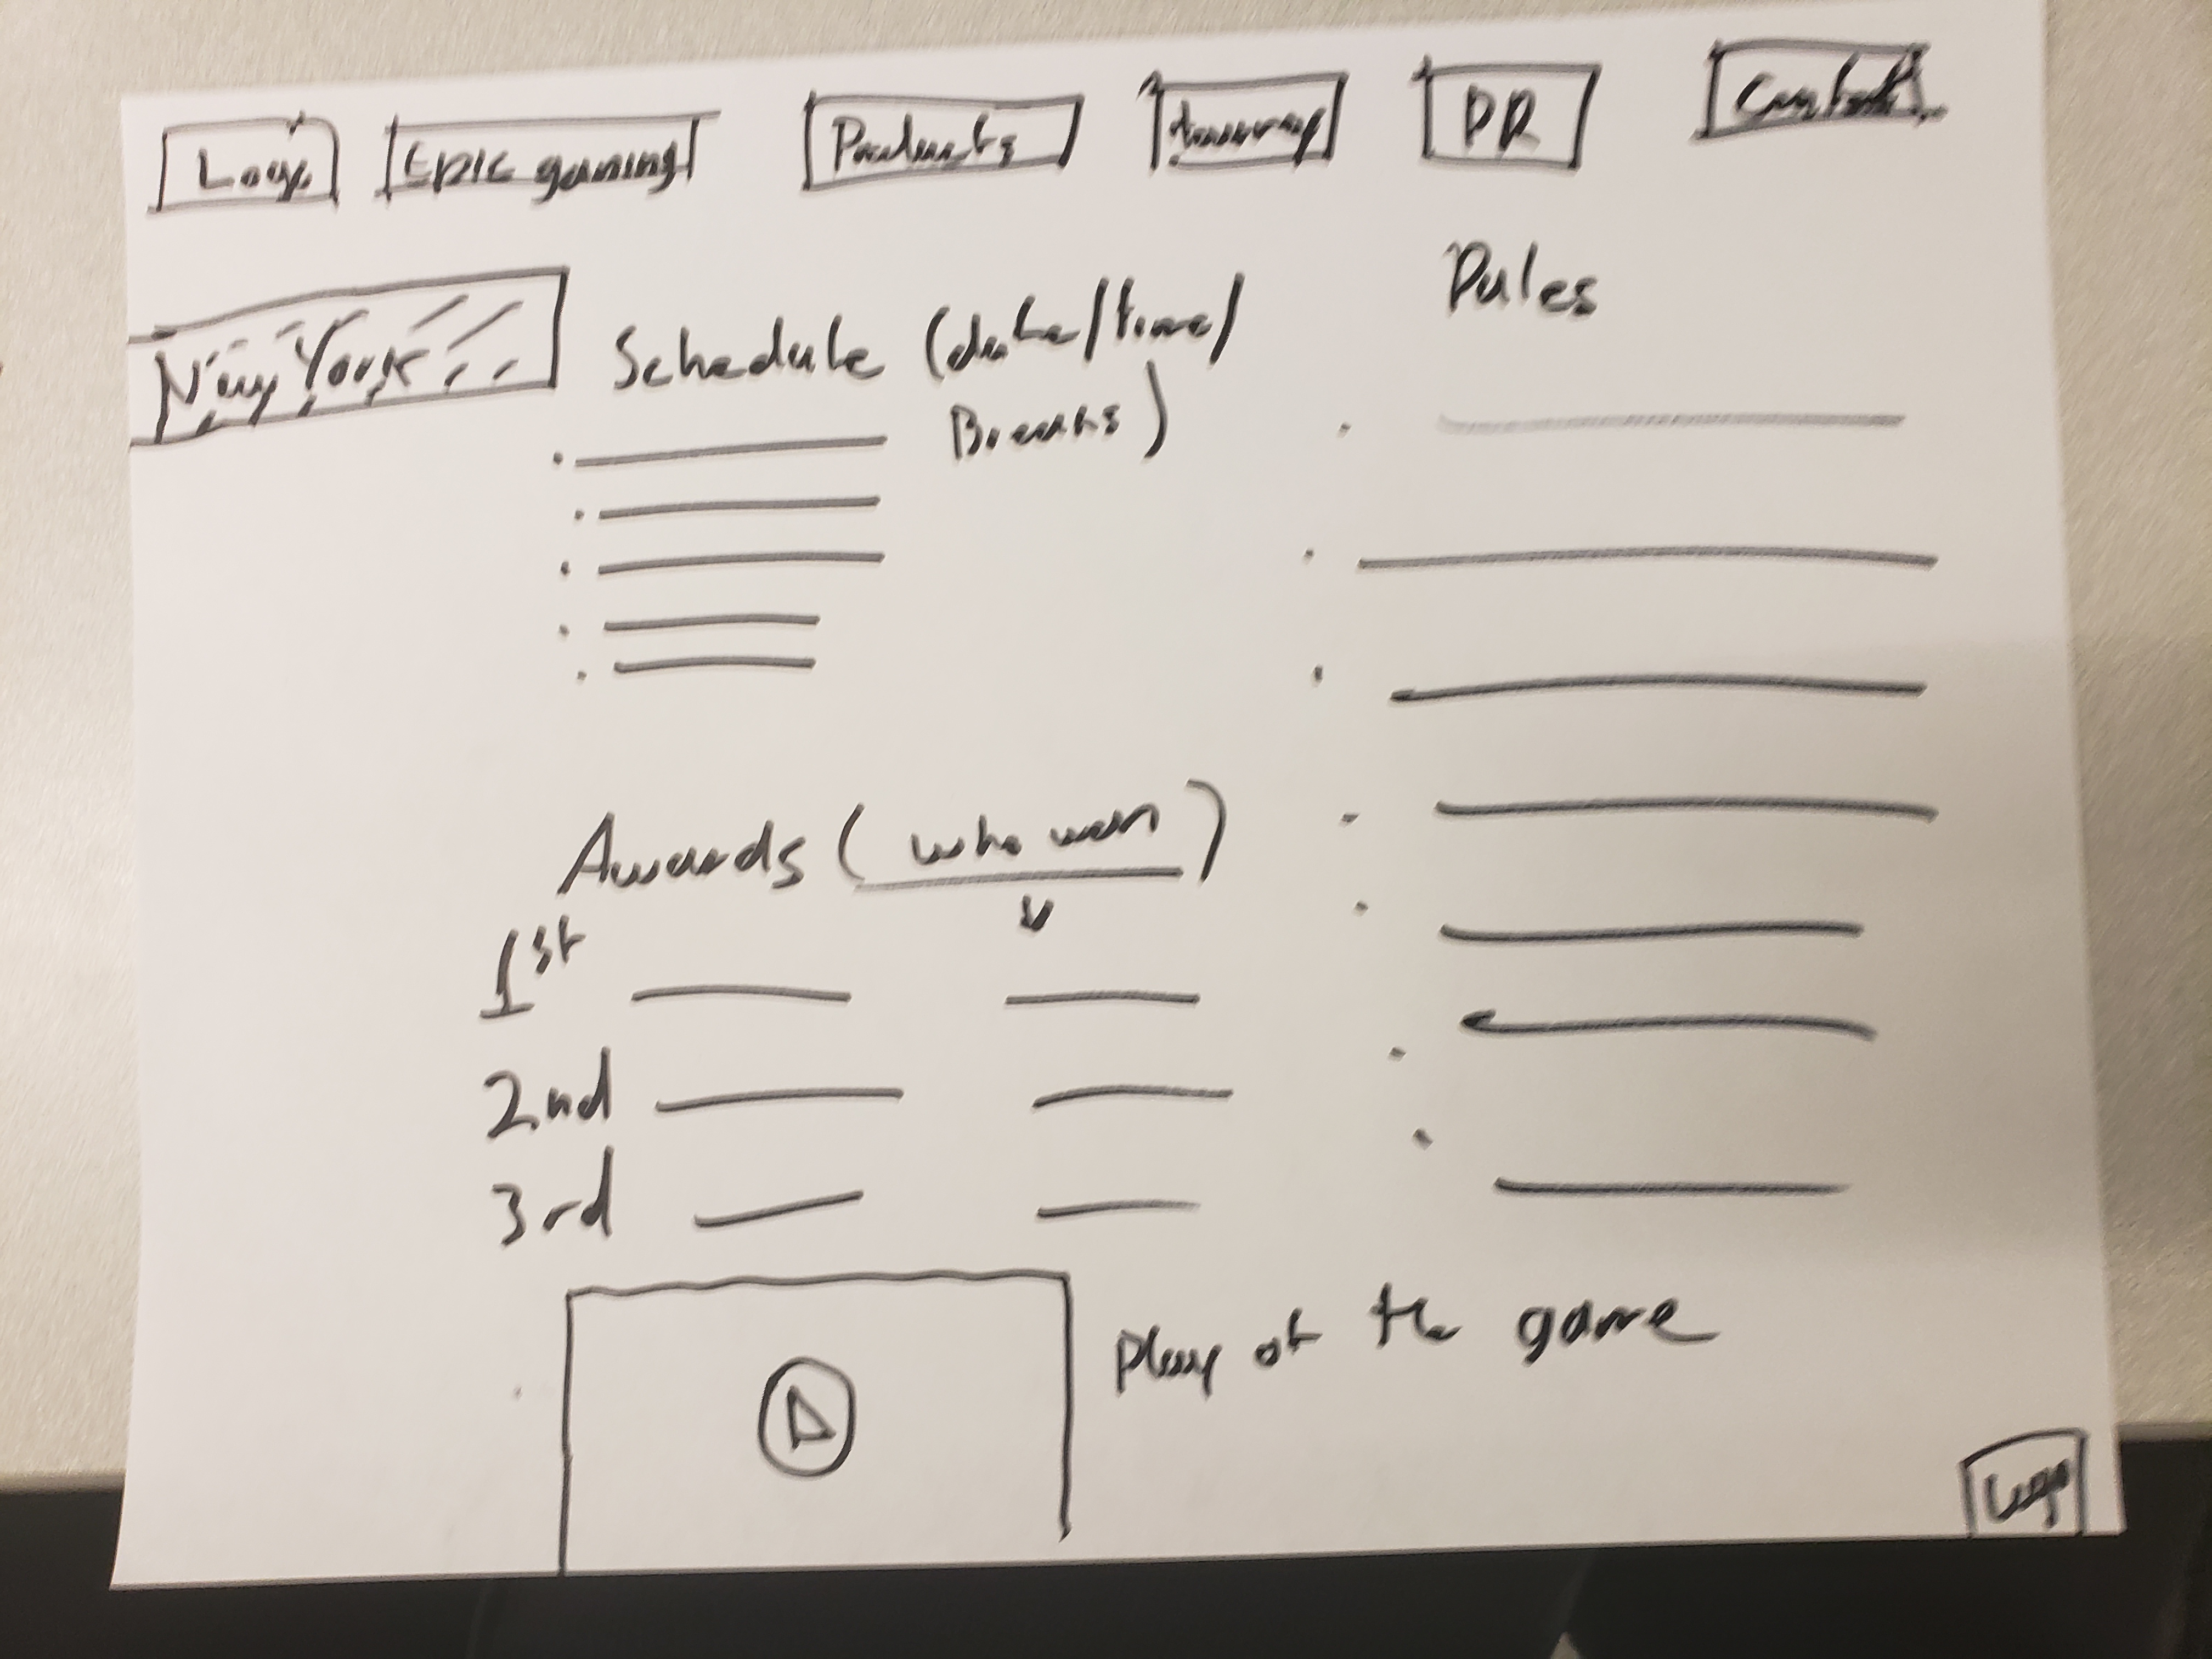 Logo
Epic gaming
Products
PR
Contact
New York
Schedule (date/time/
Brents)
Rules
Awards (who won)
1st
2nd
3rd
Play of the game
Logo